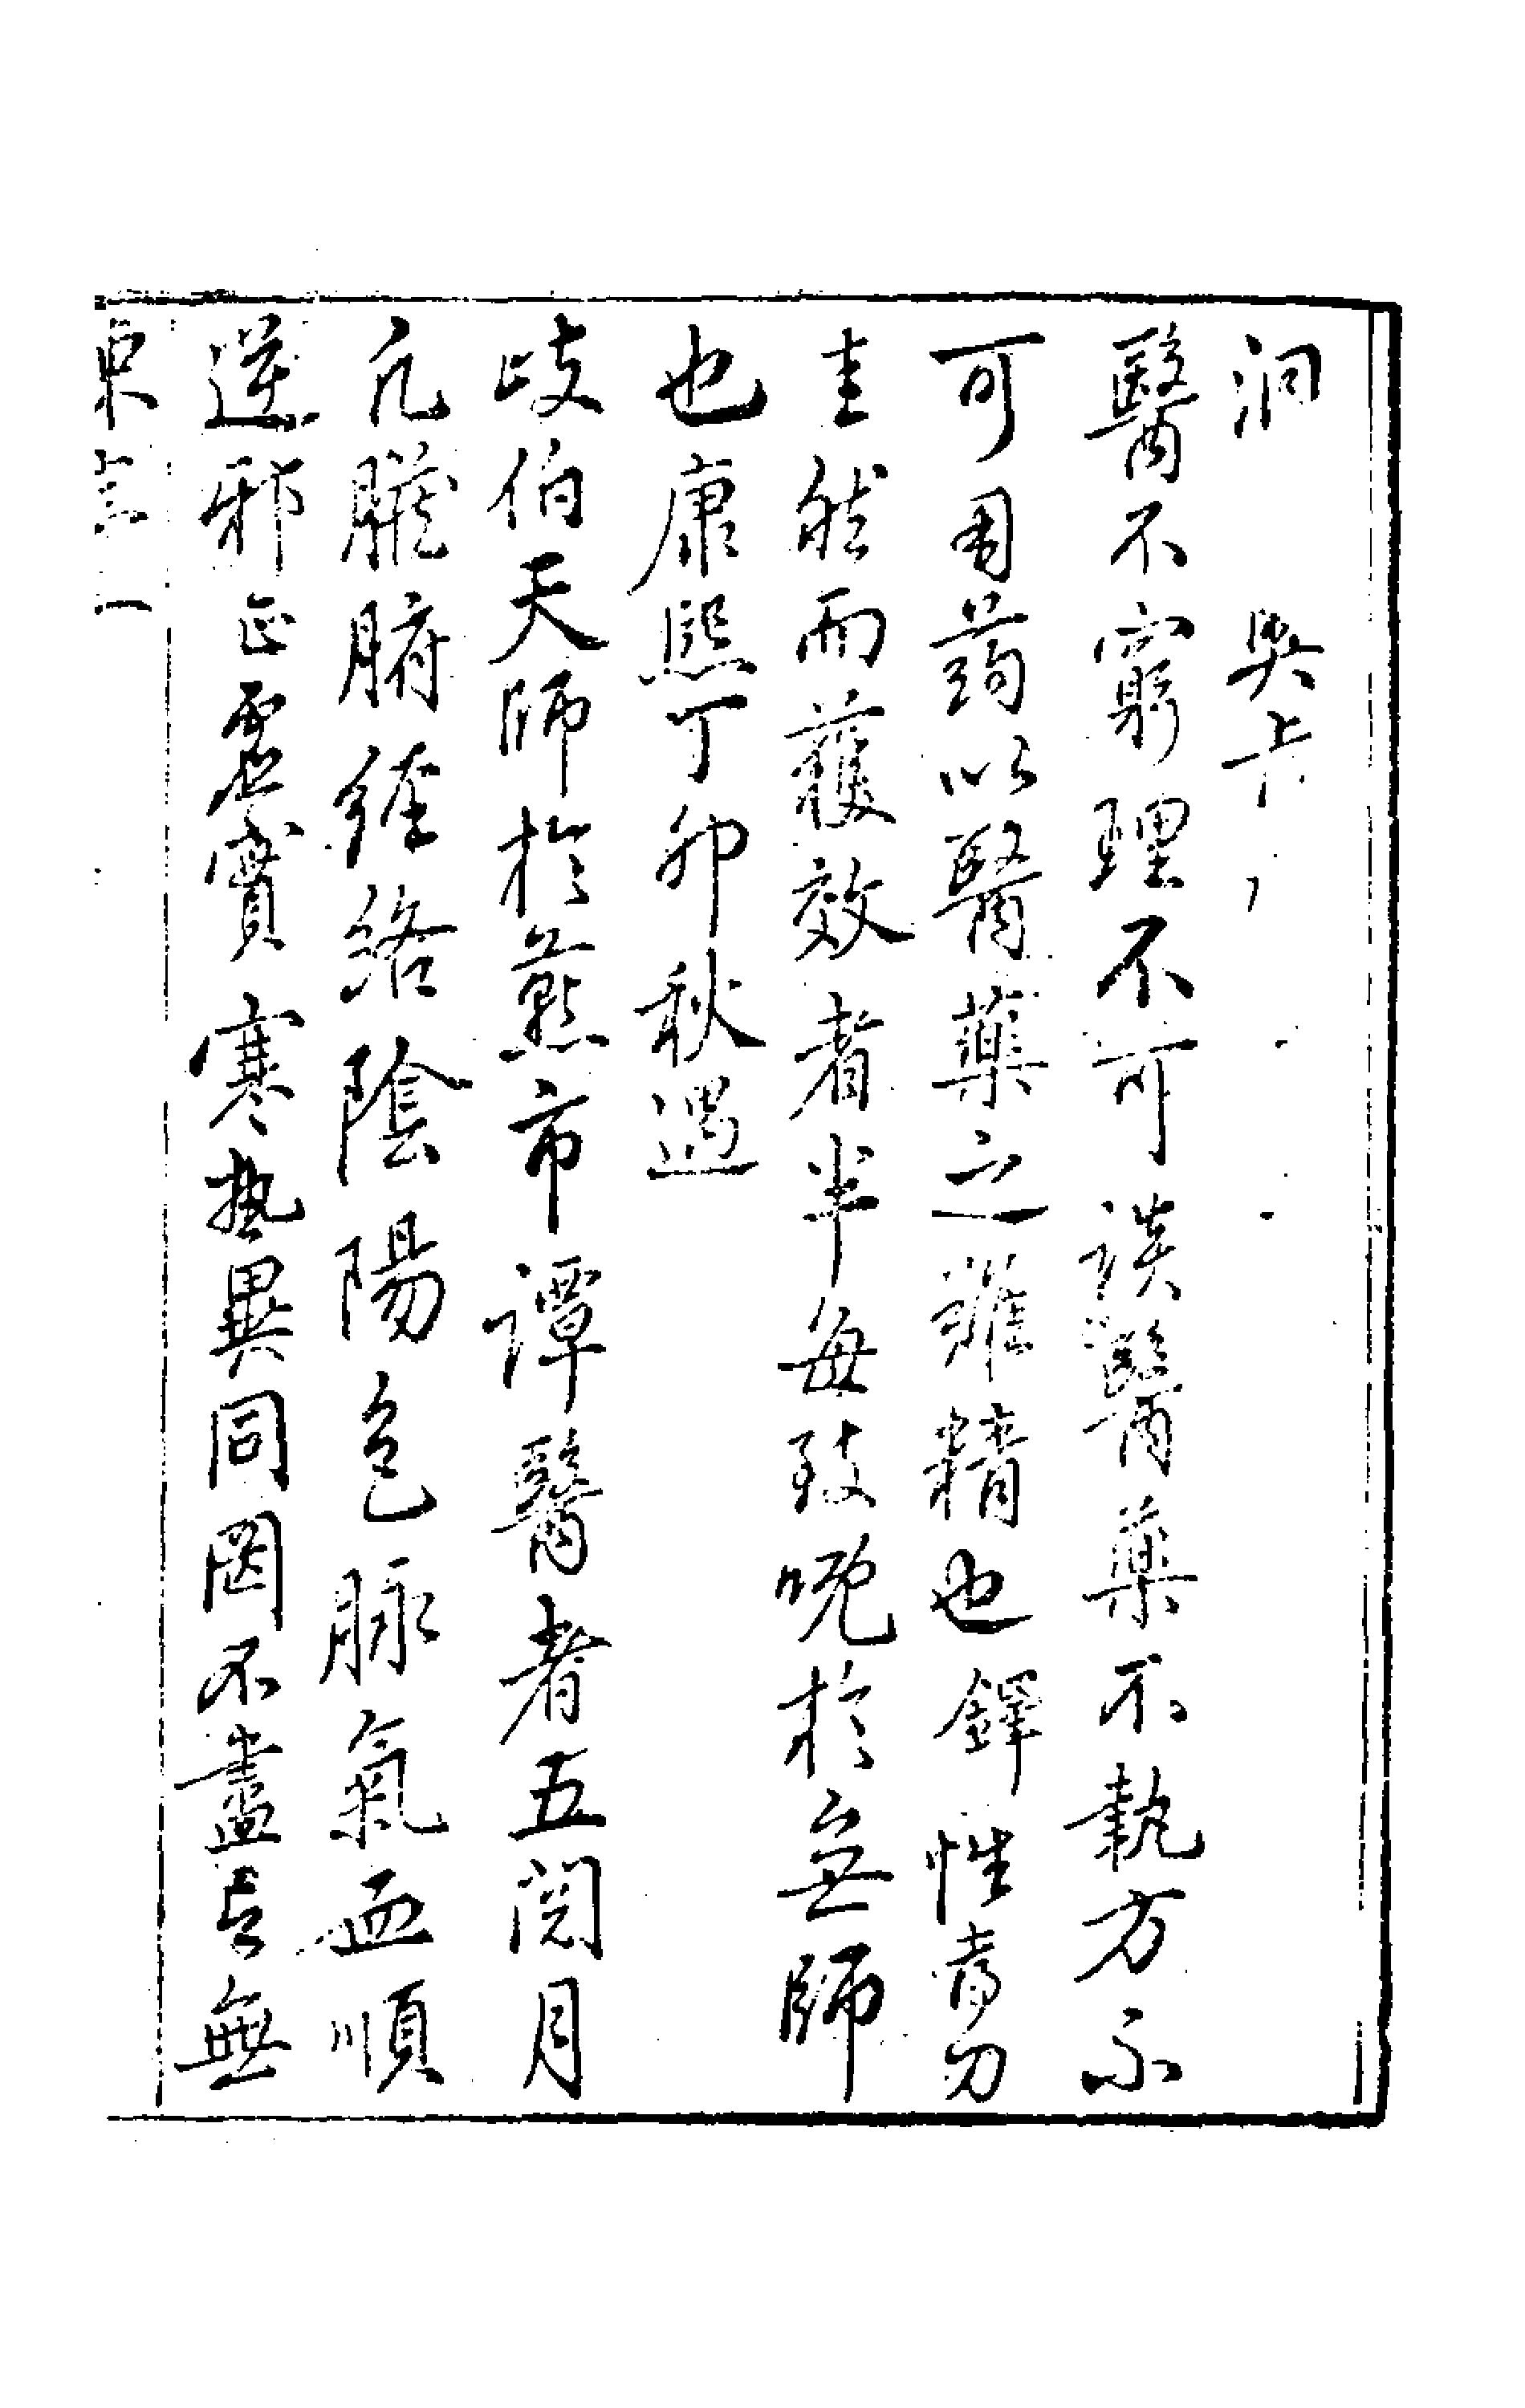 洞　奥
醫不窮理不可談醫藥不執方不
可用葯以醫藥之難精也鐸性耆刀
圭然而獲效者半每致嘅於無師
也康熙丁卯秋遇
岐伯天師於燕市譚醫者五閱月
凡臟腑經絡陰陽色脉氣血順
逆邪正虛實寒熱異同罔不盡言無